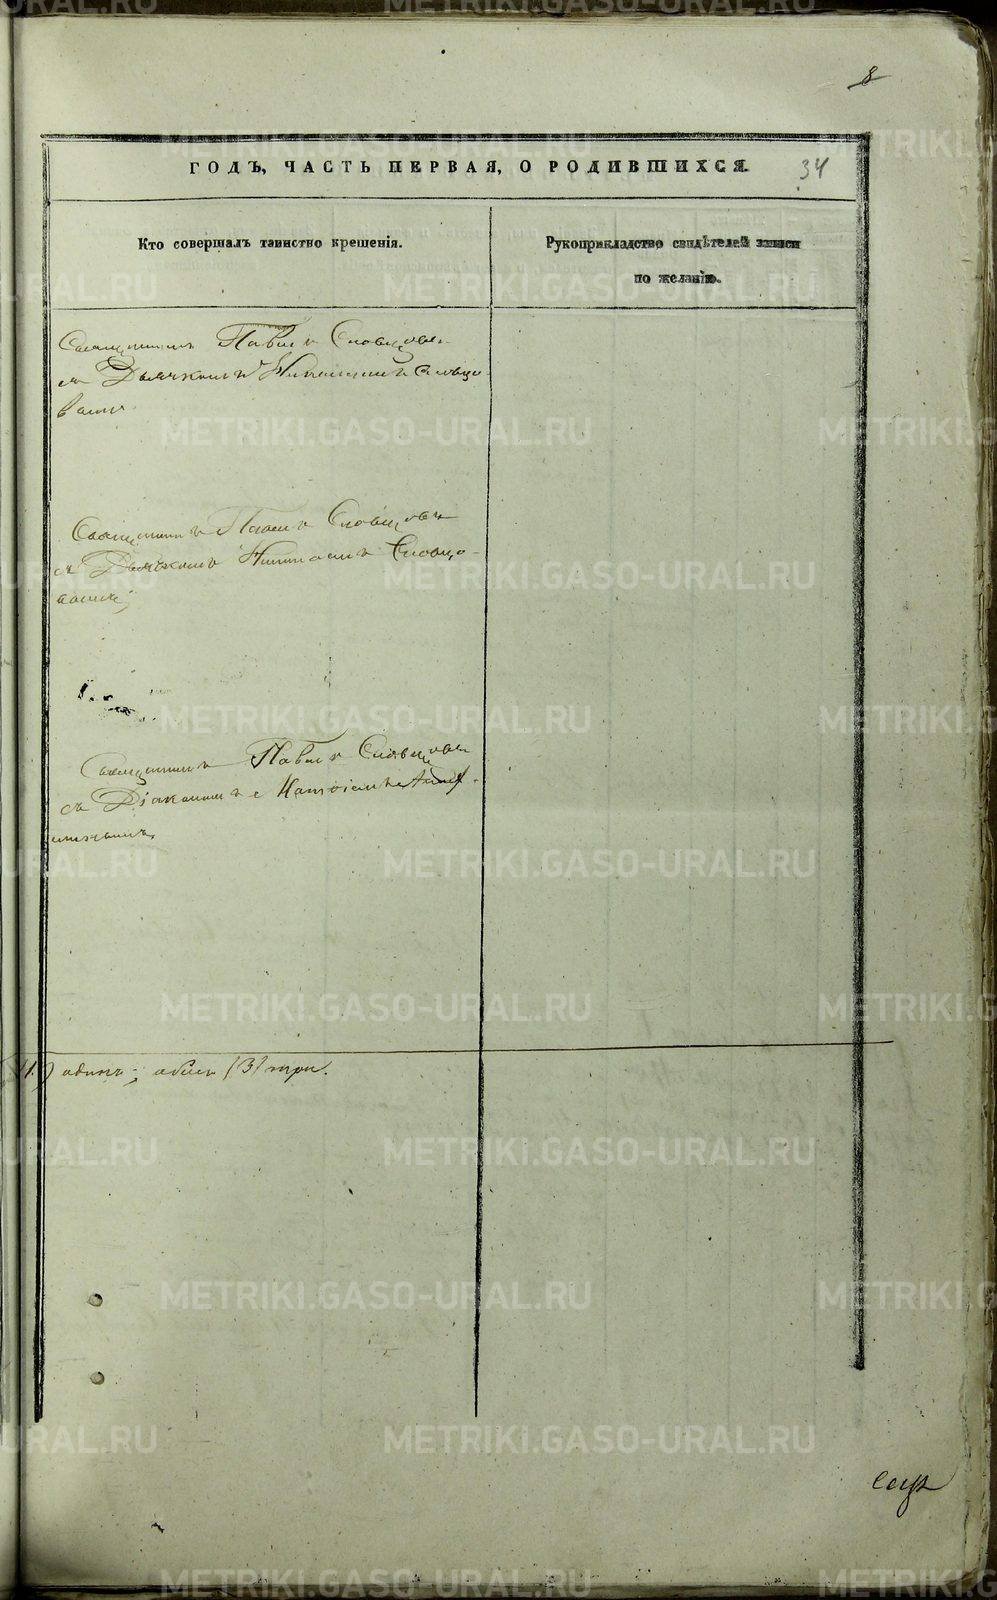 8
ГОДЪ, ЧАСТЬ ПЕРВАЯ, О РОДИВШИХСЯ. 34
Кто совершалъ таинство крещенія.
Рукоприкладство свидѣтелей записи
по желанію.
Священникъ Павелъ Словцовъ
съ Дьячкомъ Словцо-
вымъ
Священникъ Павелъ Словцовъ
съ Дьячкомъ Словцо-
вымъ
Священникъ Павелъ Словцовъ
съ Діакономъ
одинъ; обоего (3) три.
METRIKI.GASO-URAL.RU